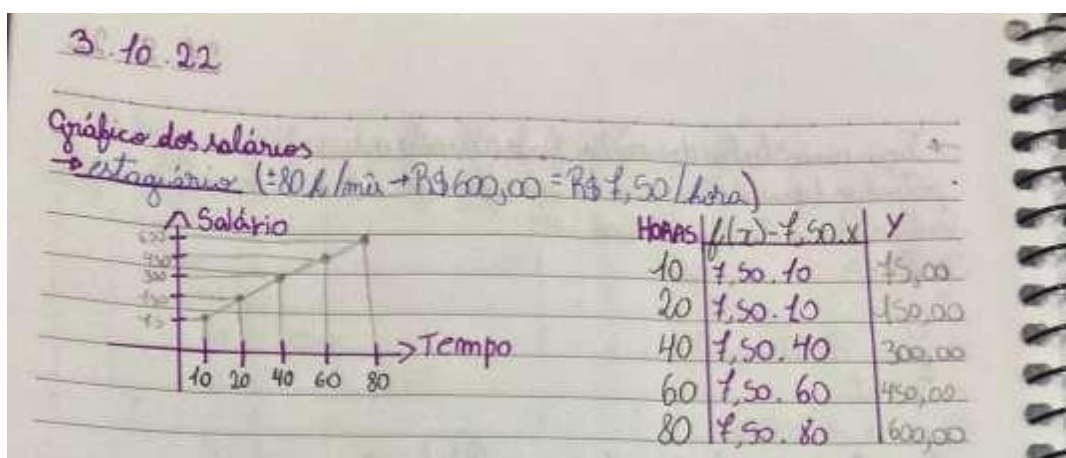 3.10.22
Gráfico dos salários
→ estagiário (±80 h/mês → R$600,00 = R$7,50/hora)
Salário
600
450
300
150
75
Tempo
10 20 40 60 80
HORAS f(x)=7,50.x Y
10 7,50.10 75,00
20 7,50.10 150,00
40 7,50.40 300,00
60 7,50.60 450,00
80 7,50.80 600,00